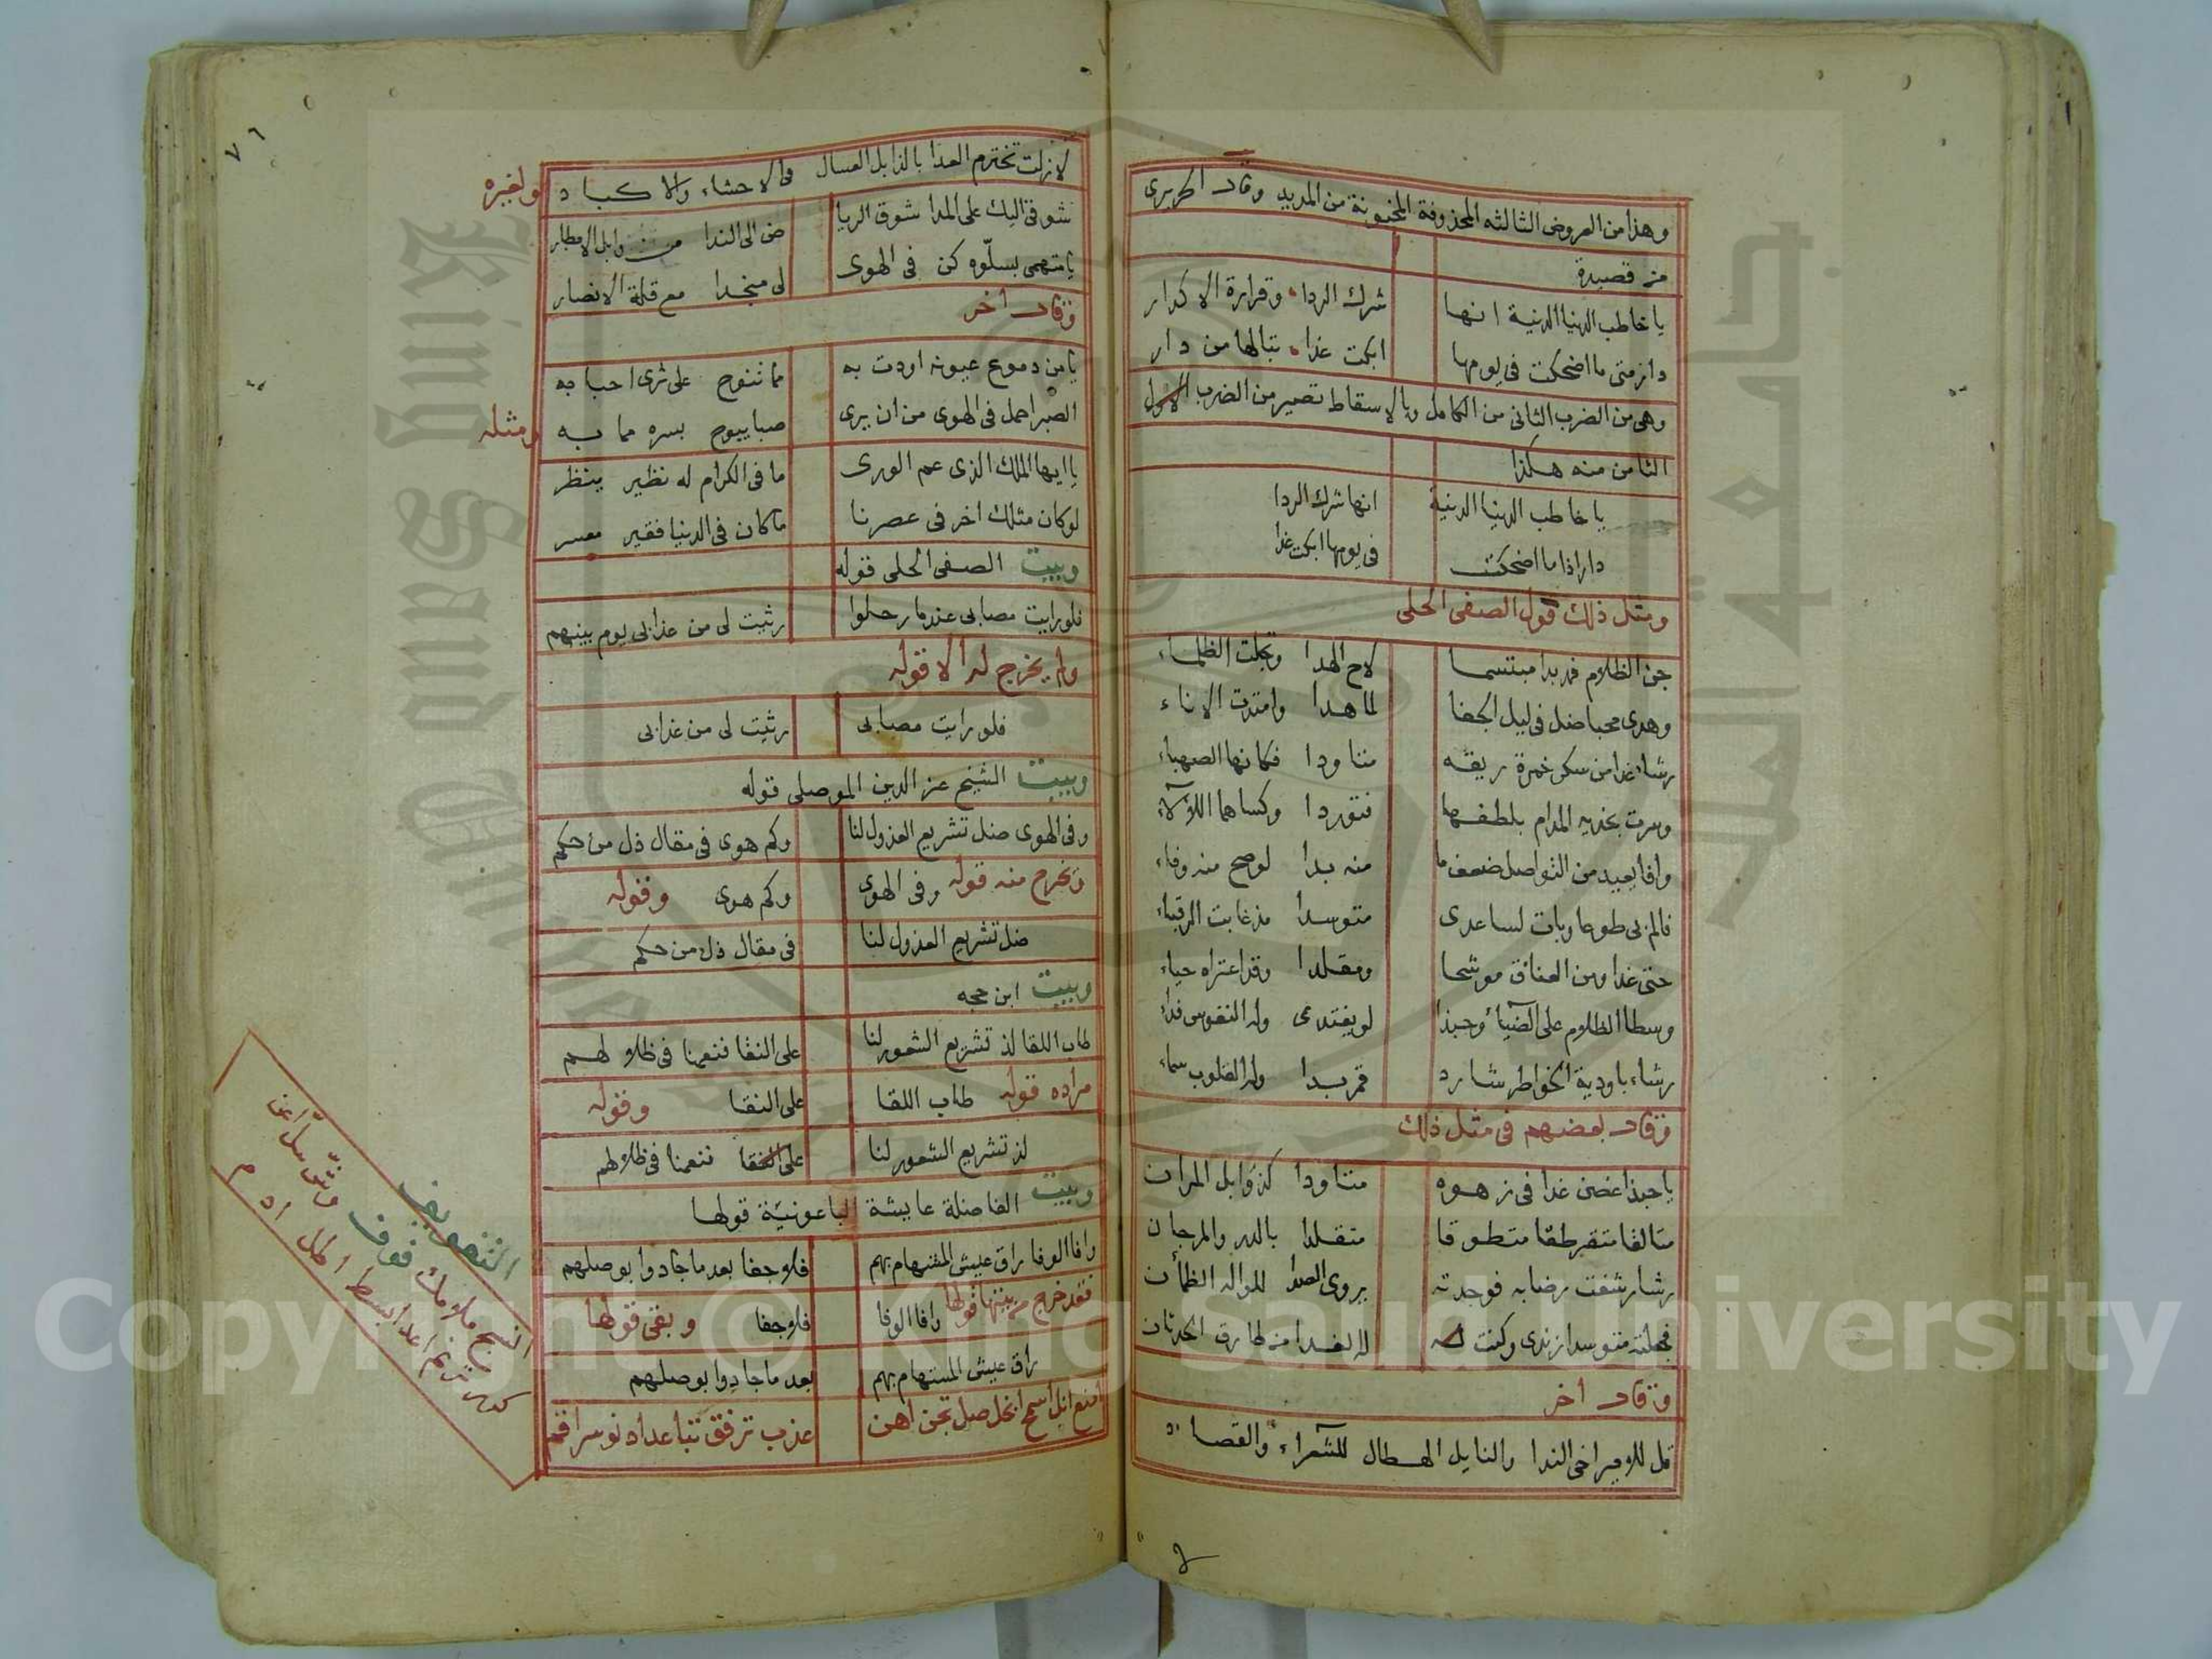 وهذا من العروض الثالثه المحذوفة المخبونة من المديد وقال الحريرى
من قصيدة
يا خاطب الدنيا الدنية انها شرك الردا وقرارة الاكدار
دار متى ما اضحكت فى يومها ابكت غدا تبا لها من دار
وهى من الضرب الثانى من الكامل وبالاسقاط تصير من الضرب
الثامن منه هكذا
يا خاطب الدنيا الدنية انها شرك الردا
دار اذا ما اضحكت فى يومها ابكت غدا
ومثل ذلك قول الصفى الحلى
جن الظلام فمذ بدا مبتسما لاح الهدا وتجلت الظلماء
وهدى محبا ضل فى ليل الجفا لما هدا وامتدت الاناء
رشاء غدا من سكر خمرة ريقه متاودا فكانها الصهباء
وسرت بخديه المدام بلطفها فتوردا وكساهما اللؤلاء
وافا يعيد من التواصل ضعف ما منه بدا لوصح منه وفاء
فالم بى طوعا وبات لساعدى متوسدا مذ غابت الرقباء
حتى غدا ومن العناق موشحا ومقلدا وقد اعتراه حياء
وسطا الظلام على الضياء وحبذا لو يفتدى وله النفوس فداء
رشاء باودية الخواطر شارد قمر بدا وله القلوب سماء
وقال بعضهم فى مثل ذلك
يا حبذا غصن غدا فى زهوه متاودا كذوابل المران
متالفا متقرطقا متطوقا متقلدا بالدر والمرجان
رشا رشفت رضابه فوجدته يروى الصدا للواله الظمأن
فجعلته متوسدا زندى وكنت له الفدا من طارق الحدثان
وقال اخر
قل للامير اخى الندا والنايل الهطال للشعراء والقصاد
٧٦
لا زلت تخترم العدا بالذابل العسال فى الاحشاء والاكباد ولغيره
شوقى اليك على المدا شوق الريا ض الى الندا من وابل الامطار
يا متهمى بسلوه كن فى الهوى لى منجدا مع قلة الانصار
وقال اخر
يا من دموع عيونه اودت به مما تنوح على ثرى احبابه
الصبر اجمل فى الهوى من ان يرى صبا يبوح بسره مما به ومثله
يا ايها الملك الذى عم الورى ما فى الكرام له نظير ينظر
لو كان مثلك اخر فى عصرنا ما كان فى الدنيا فقير معسر
وبيت الصفى الحلى قوله
فلو رايت مصابى عندما رحلوا رثيت لى من عذابى يوم بينهم
ولم يخرج له الا قوله
فلو رايت مصابى رثيت لى من عذابى
وبيت الشيخ عز الدين الموصلى قوله
وفى الهوى ضل تشريع العذول لنا وكم هوى فى مقال ذل من حكم
وتخرج منه قوله وفى الهوى وكم هوى وقوله
ضل تشريع العذول لنا فى مقال ذل من حكم
وبيت ابن حجه
طاب اللقا لذ تشريع الشعور لنا على النقا فنعمنا فى ظلالهم
مراده قوله طاب اللقا على النقا وقوله
لذ تشريع الشعور لنا على النقا فنعمنا فى ظلالهم
وبيت الفاضلة عايشة الباعونية قولها
وافا الوفا راق عيش المستهام بهم فلا جفا بعد ما جادوا بوصلهم
فقد خرج من بيتها قولها وافا الوفا فلا جفا وبقى قولها
راق عيش المستهام بهم بعد ما جادوا بوصلهم
امنع انل اسمح ابخل صل تجن اهن عذب ترفق تباعد ادن
التفويف